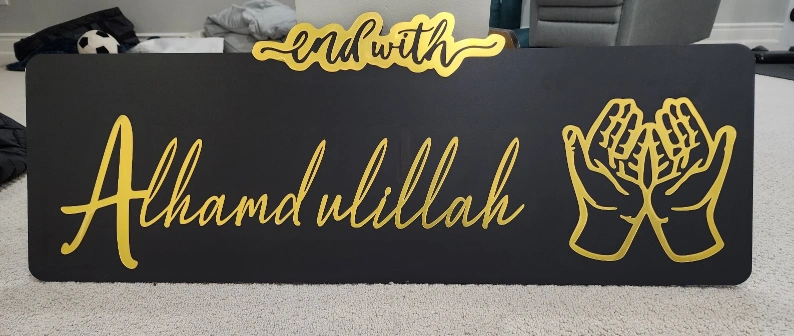 end with
Alhamdulillah